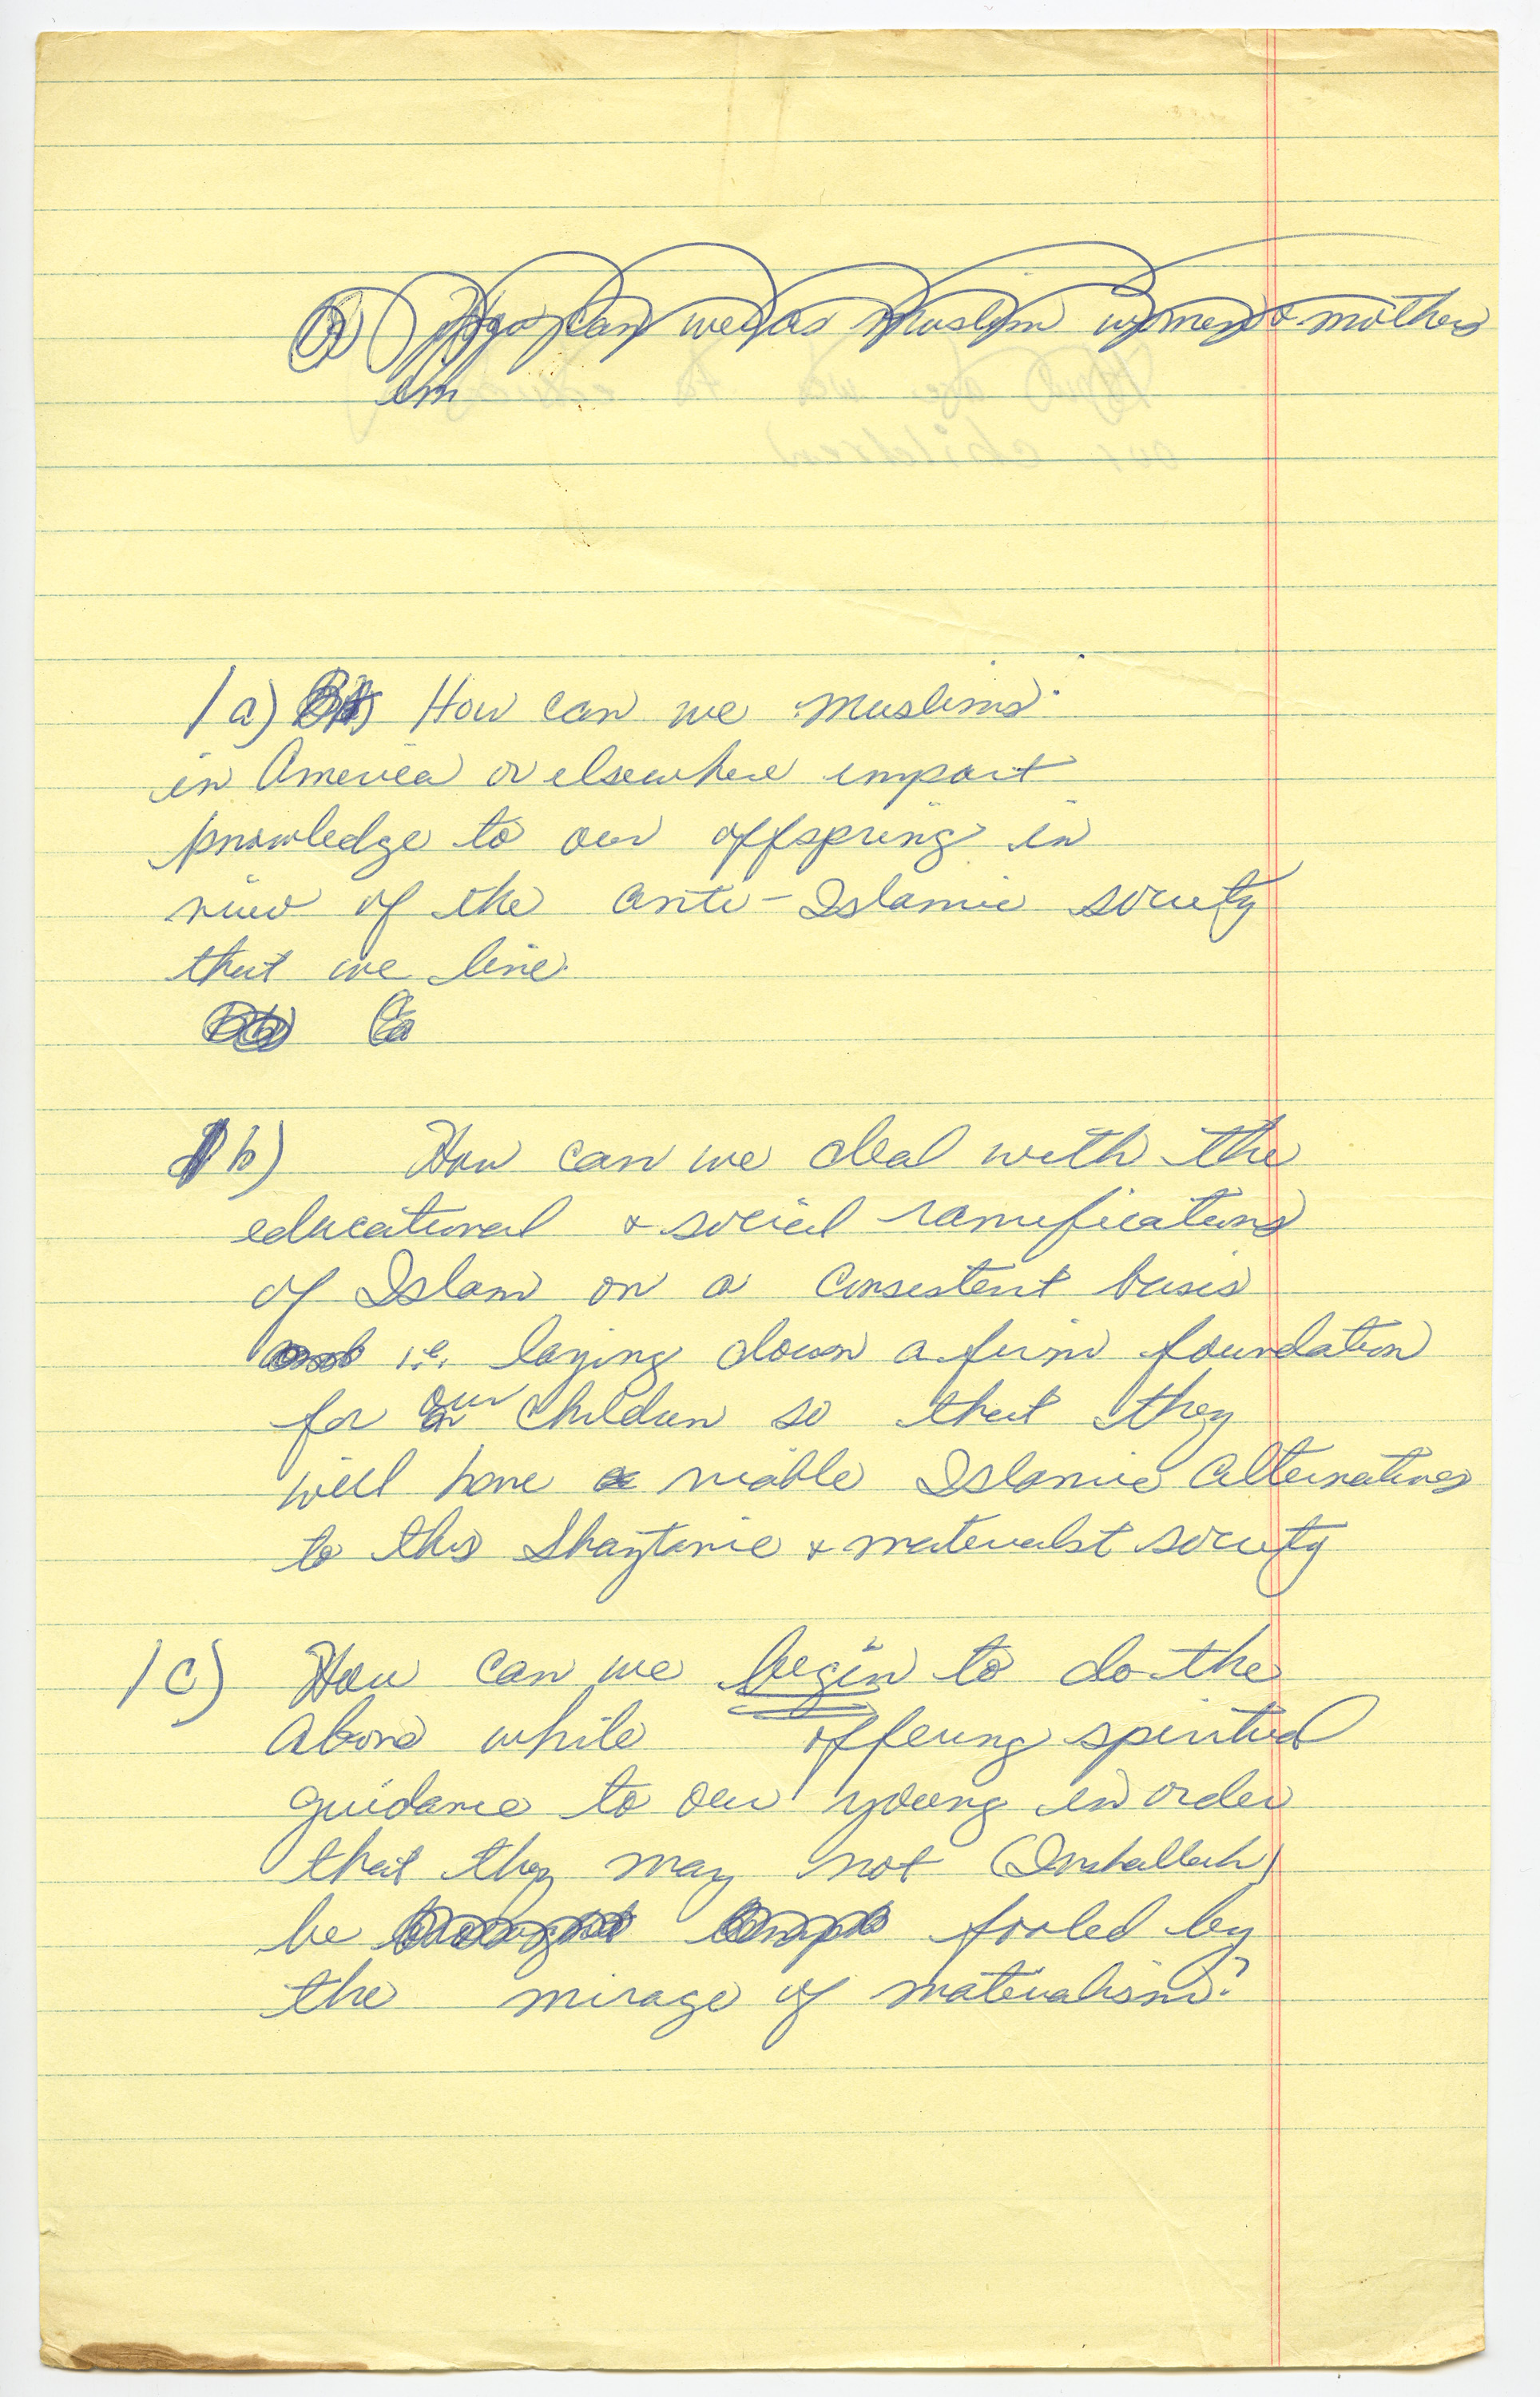 How can we as Muslim women & mothers
im
1a) How can we muslims
in America or elsewhere impart
knowledge to our offspring in
view of the anti-Islamic society
that we live.
1b) How can we deal with the
educational & social ramifications
of Islam on a consistent basis
and i.e. laying down a firm foundation
for our children so that they
will have a viable Islamic alternatives
to this Shaytanic & materialst society
1c) How can we begin to do the
above while offering spiritual
guidance to our young in order
that they may not (Inshallah)
be brought fooled by
the mirage of materialism?